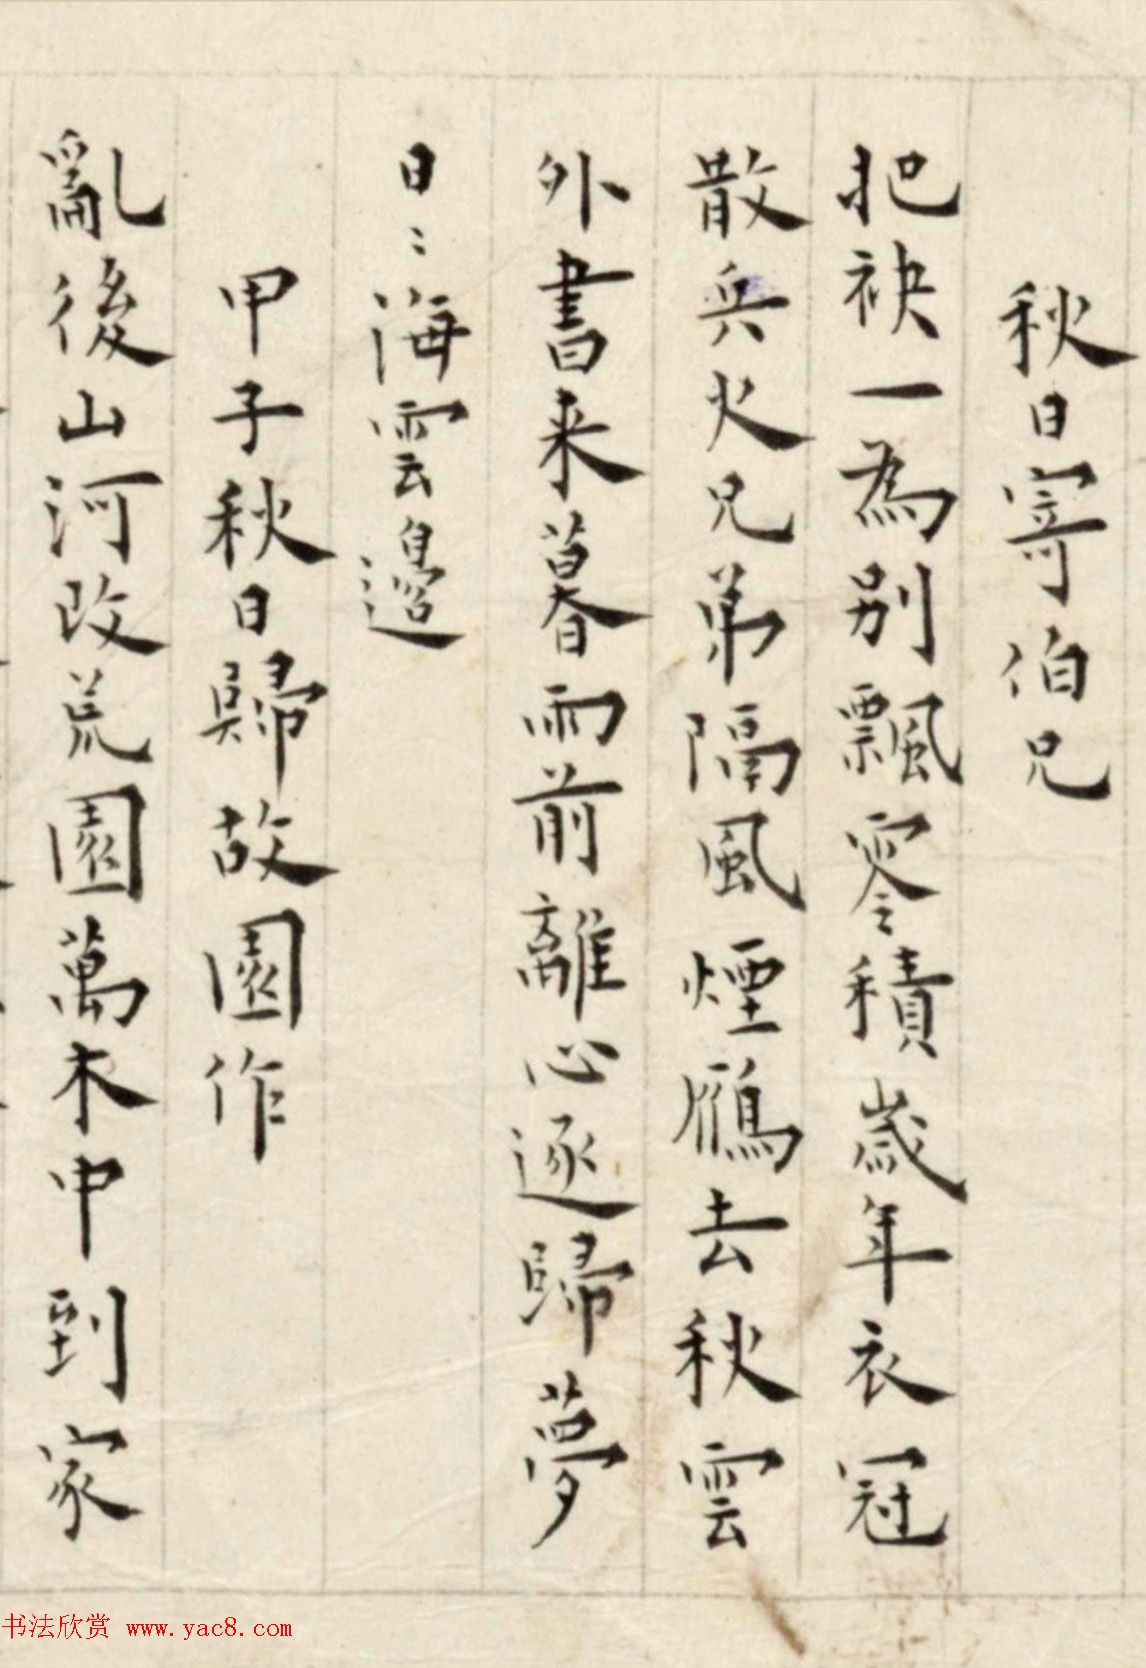 秋日寄伯兄
把袂一為别飄零積歲年衣冠
散兵火兄弟隔風煙鴈去秋雲
外書来暮雨前離心逐歸夢
日〻海雲邉
甲子秋日歸故園作
亂後山河改荒園萬木中到家
书法欣赏 www.yac8.com